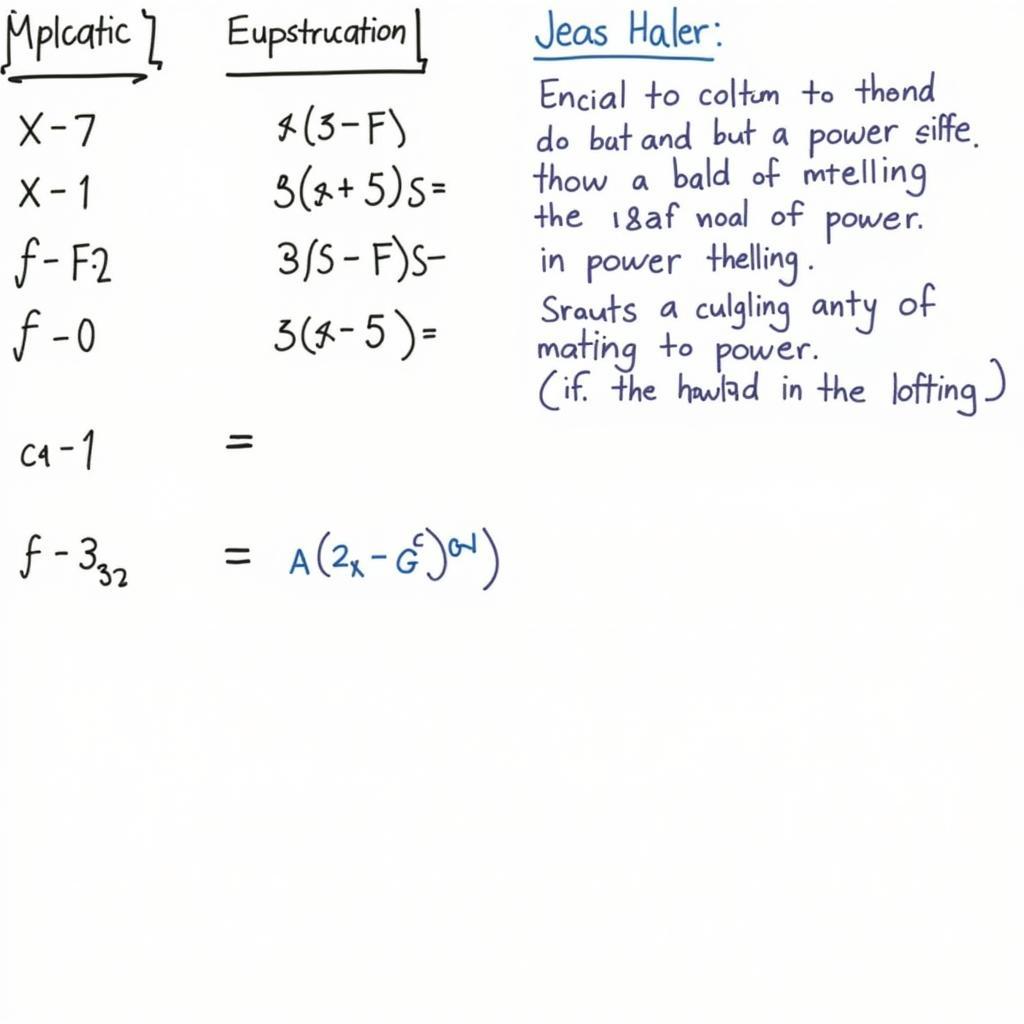 Mplcatic
Eupstrucation
X-7
X-1
f-F2
f-0
(3-F)
3( + 5)S=
3(S-F)S-
3( - 5)=
c4-1 =
f-3₃₂ = A(2ₓ-Gᶜ) )
Jeas Haler:
Encial to coltum to thend
do bat and but a power siffe.
thow a bald of mtelling
the 18af noal of power.
in power thelling.
Srauts a culgling anty of
mating to power.
(if. the in the lofting)